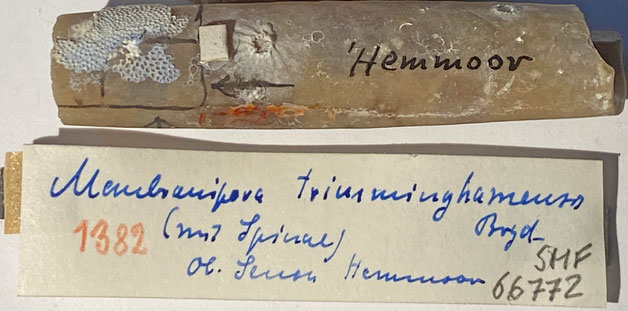 'Hemmoor
Membranipora trimminghamensis
Bryd.
1382 (mit Spinae)
Ob. Senon Hemmoor
SMF
66772